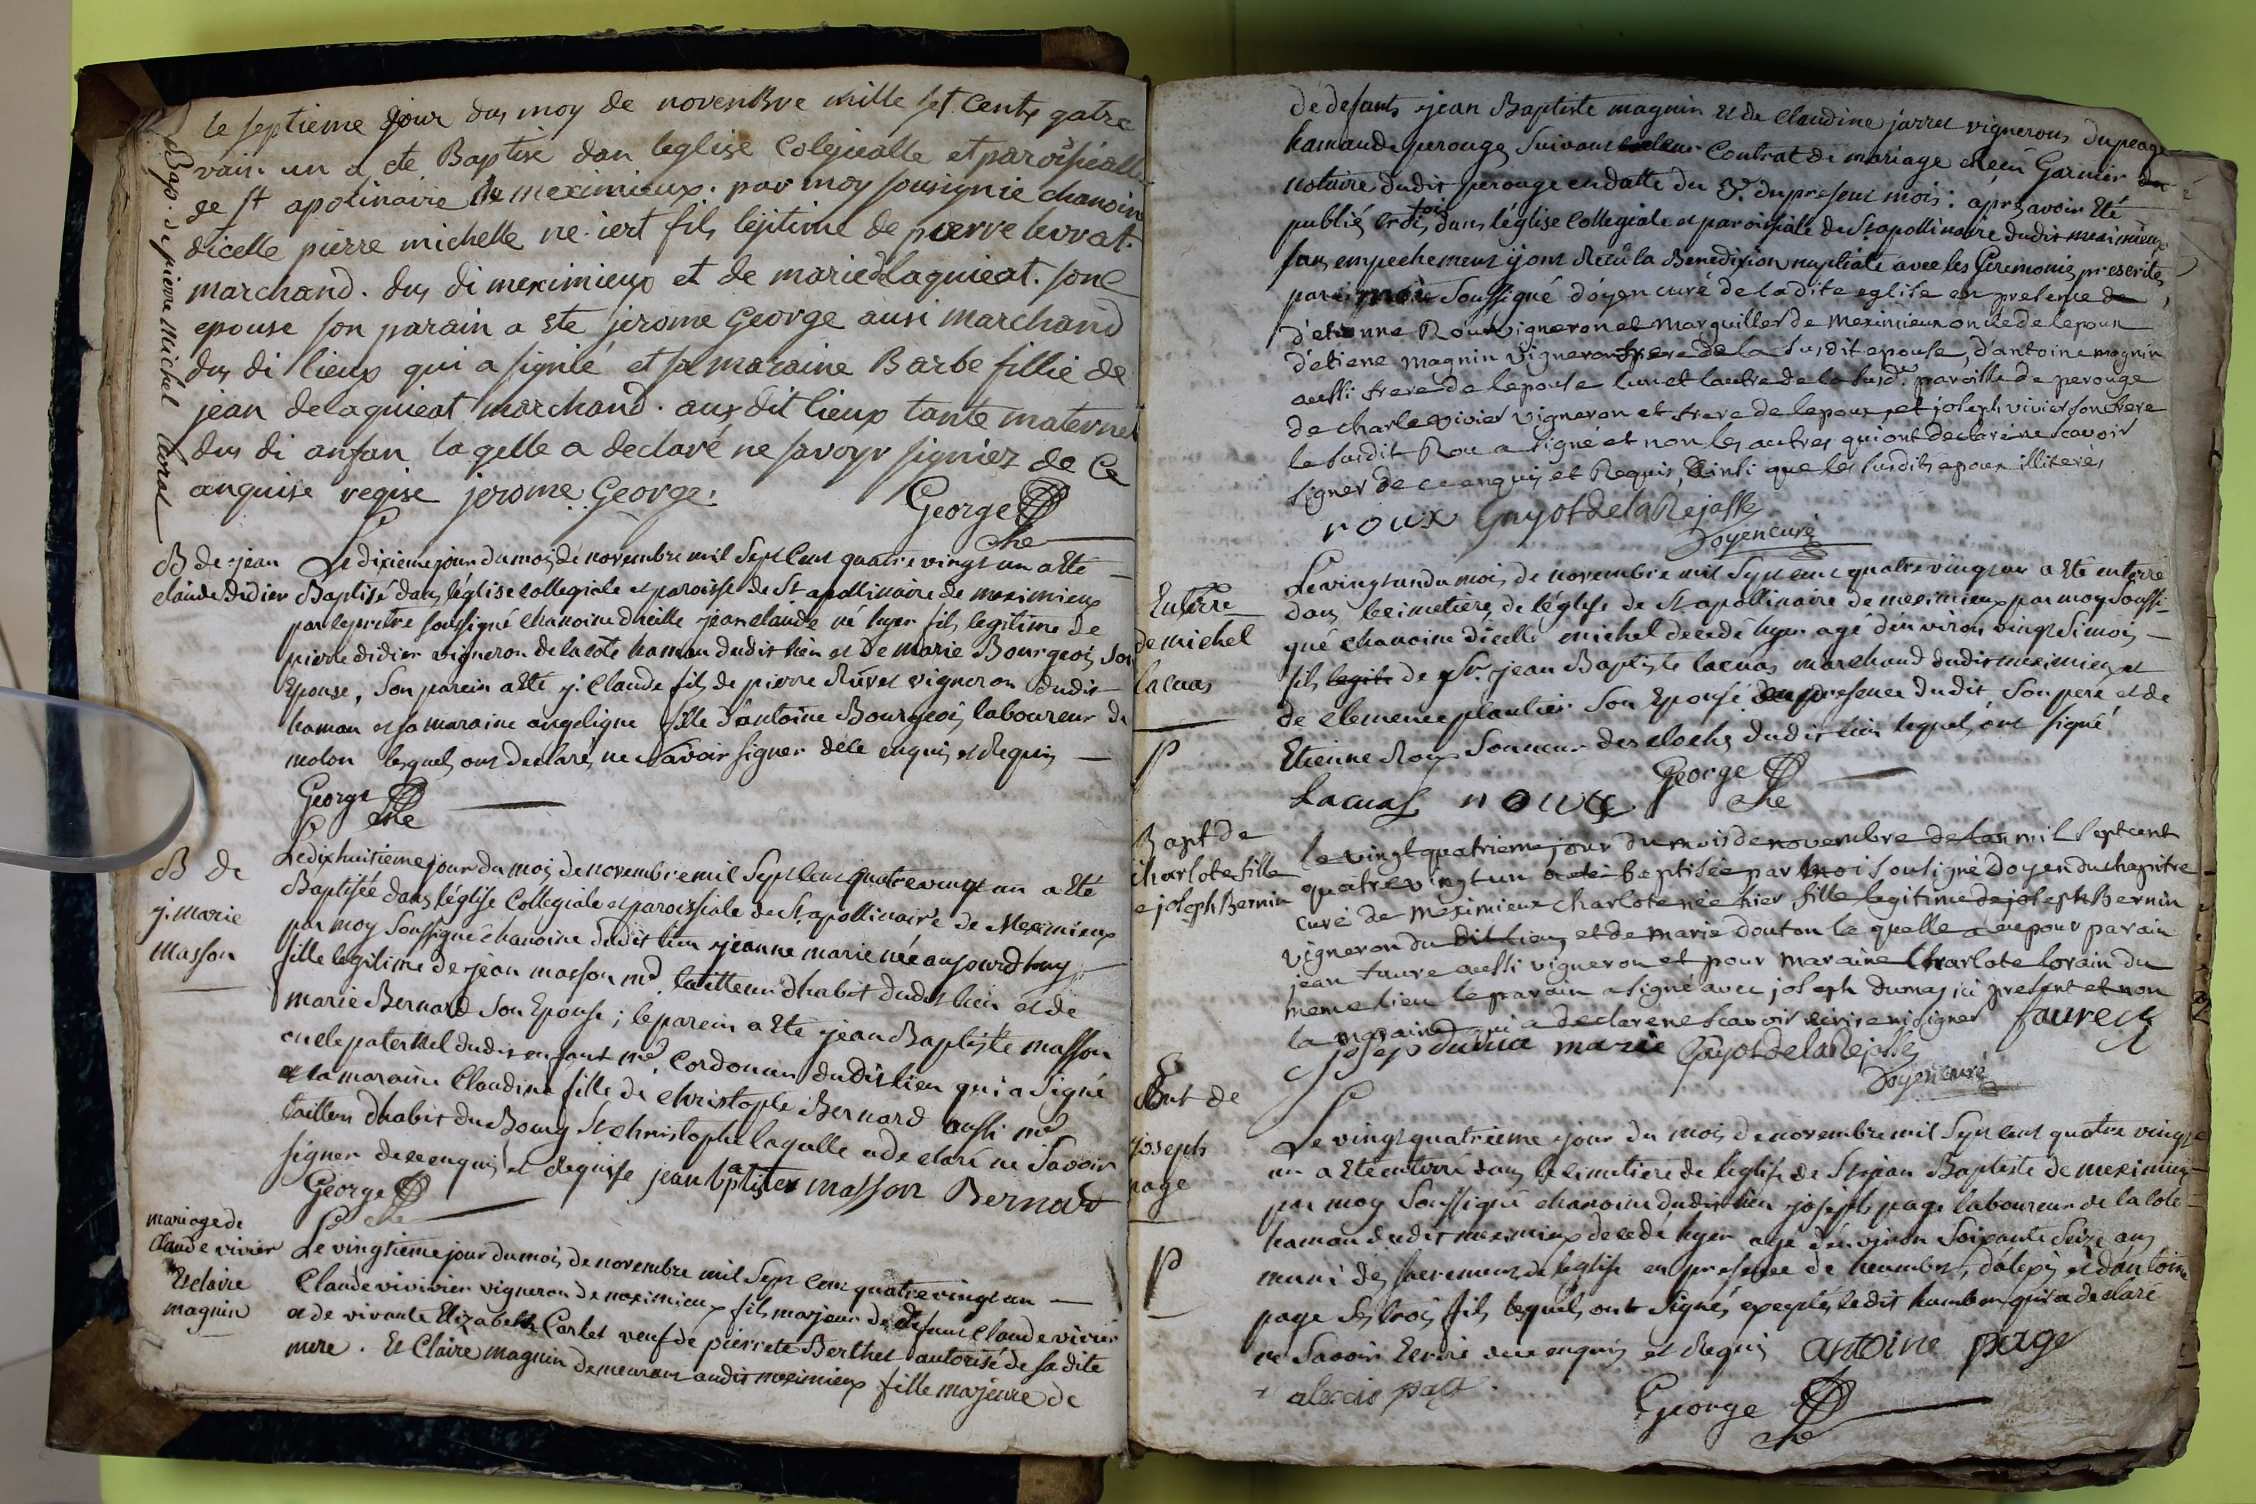 Bap. de pierre Michel livrat
le septieme jour du moy de novembre mille set cents qatre
vain un a ete Baptise dan leglise colejialle et paroissialle
de st apolinaire de meximieux par moy sousignie chanoin
dicelle pierre michelle ne iert fils lejitime de pierre livrat
marchand dus di meximieux et de marie delaquieat sone
epouse son parain a ete jerome George ausi marchand
dus di lieux qui a signié et sa maraine Barbe fillie de
jean delaquieat marchand aux dit lieux tante maternel
dus di anfan laqelle a declaré ne savoyr signiez de ce
anquise reqise jerome George
George
che
B de jean
claude didier
Le dixieme jour du mois de novembre mil sept cent quatre vingt un a ete
Baptisé dans l'église collegiale et paroisse de St apollinaire de meximieux
par le pretre soussigné chanoine d'icelle jean claude né hyer fils legitime de
pierre didier vigneron de la cote hamau dudit lieu et de marie Bourgeois son
Epouse, son parein a ete j. Claude fils de pierre Rüvet vigneron dudit
hamau et sa maraine angeligue fille d'antoine Bourgeois laboureur de
molon lesquels ont declaré ne savoir signer de ce enquis et Requis
George
che
B de
j. marie
masson
Le dix huitieme jour du mois de novembre mil sept cent quatre vingt un a eté
Baptisée dans l'église Collegiale et paroissiale de St apollinaire de Meximieux
par moy soussigné chanoine dudit lieu jeanne marie née aujourd huy
fille legitime de jean masson md tailleur d'habit dudit lieu et de
marie Bernard son Epouse ; le parein a eté jean Baptiste masson
oncle paternel dudit enfant md Cordonier dudit lieu qui a signé
et la maraine Claudine fille de christophe Bernard aussi md
tailleur d'habit du Bourg St christophe laquelle a declaré ne savoir
signer de ce enquise et Requise jean baptiste masson Bernard
George
che
mariage de
Claude vivier
Et claire
magnin
Le vingtieme jour du mois de novembre mil sept cent quatre vingt un
Claude vivivier vigneron de meximieux fils majeur de defunt Claude vivier
et de vivante Elizabeth Carlet veuf de pierrete Berthet autorisé de sa dite
mere . Et Claire magnin demeurant audit meximieux fille majeure de
de defunts jean Baptiste magnin et de claudine jarret vignerons du peage
hamau de perouge suivant Contrat de mariage Receu Garnier
notaire dudit perouge en datte du 3e du present mois : apres avoir eté
publiés trois fois dans l'église collegiale et paroissiale de St apollinaire dudit meximieux
sans empechement ils ont Receu la Benediction nuptiale avec les Ceremonies prescrites
par moi soussigné doyen curé de ladite eglise en presence de
d'etienne Roux vigneron et marguiller de meximieux oncle de lepoux
d'etiene magnin vigneron frere de la susdit epouse, d'antoine magnin
aussi frere de lepouse lun et lautre de la susde paroisse de perouge
de charle vivier vigneron et frere de lepoux et joseph vivier son frere
le susdit Rou a signé et non les autres qui ont declaré ne scavoir
signer de ce enquis et Requis, Einsi que les susdits epoux illiterés
roux Guyot de la Rejasse
Doyen curé
Enterre
de michel
lacuas
P
Le vingt un du mois de novembre mil sept cent quatre vingt un a ete enterré
dans le cimetiere de l'église de St apollinaire de meximieux par moy soussi-
gné chanoine d'icelle michel decedé hyer agé d'environ vingt si mois
fils legit. de Sr. jean Baptiste lacuas marchand dudit meximieux et
de clemence plantier son Epouse en presence dudit son pere et de
Etienne Roux sonneur des cloches dudit lieu lequels ont signé
Lacuas roux George
che
Bapt de
charlote fille
e joseph Bernin
le vingt quatrieme jour du mois de novembre de lan mil sept cent
quatre vingt un a eté baptisée par moi sousigné Doyen du chapitre
curé de Meximieux charlote née hier fille legitime de joseph Bernin
vigneron du dit lieu et de marie douton la quelle a eu pour parain
jean faure aussi vigneron et pour maraine Charlote lorain du
meme lieu le parain a signé avec joseph dumas ici present et non
la maraine qui a declaré ne scavoir ecrire ni signer faure
josep duma marie Guyot de la Rejasse
Doyen curé
Ent de
joseph
page
P
Le vingt quatrieme jour du mois de novembre mil sept cent quatre vingt
un a eté enterré dans le cimetiere de l'église de St jean Baptiste de meximieux
par moy soussigné chanoine dudit lieu joseph page laboureur de la cote
hamau dudit meximieux decedé hyer agé d'environ soixante seize ans
muni des sacremens de l'église en presence de humbert, d'alexis et d'antoine
page ses trois fils lesquels ont signés exceptés ledit humbert qui a declaré
ne savoir Ecrire de ce enquis et Requis antoine page
alexis page
George
che